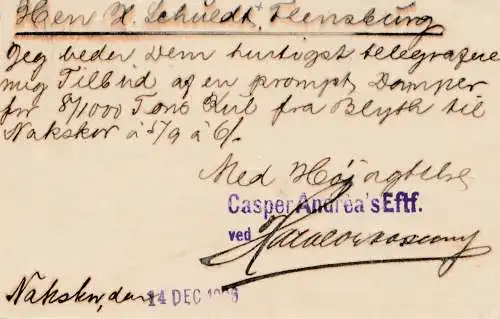 Herr H. Schuldt, Flensburg
Jeg beder Dem hurtigst telegrafere
mig Tilbud af en prompt Damper
for 8/1000 Tons Kul fra Blyth til
Nakskov à 5/9 à 6/.
Med Højagtelse
Casper Andrea's Eftf.
ved
Nakskov, den
14 DEC 19